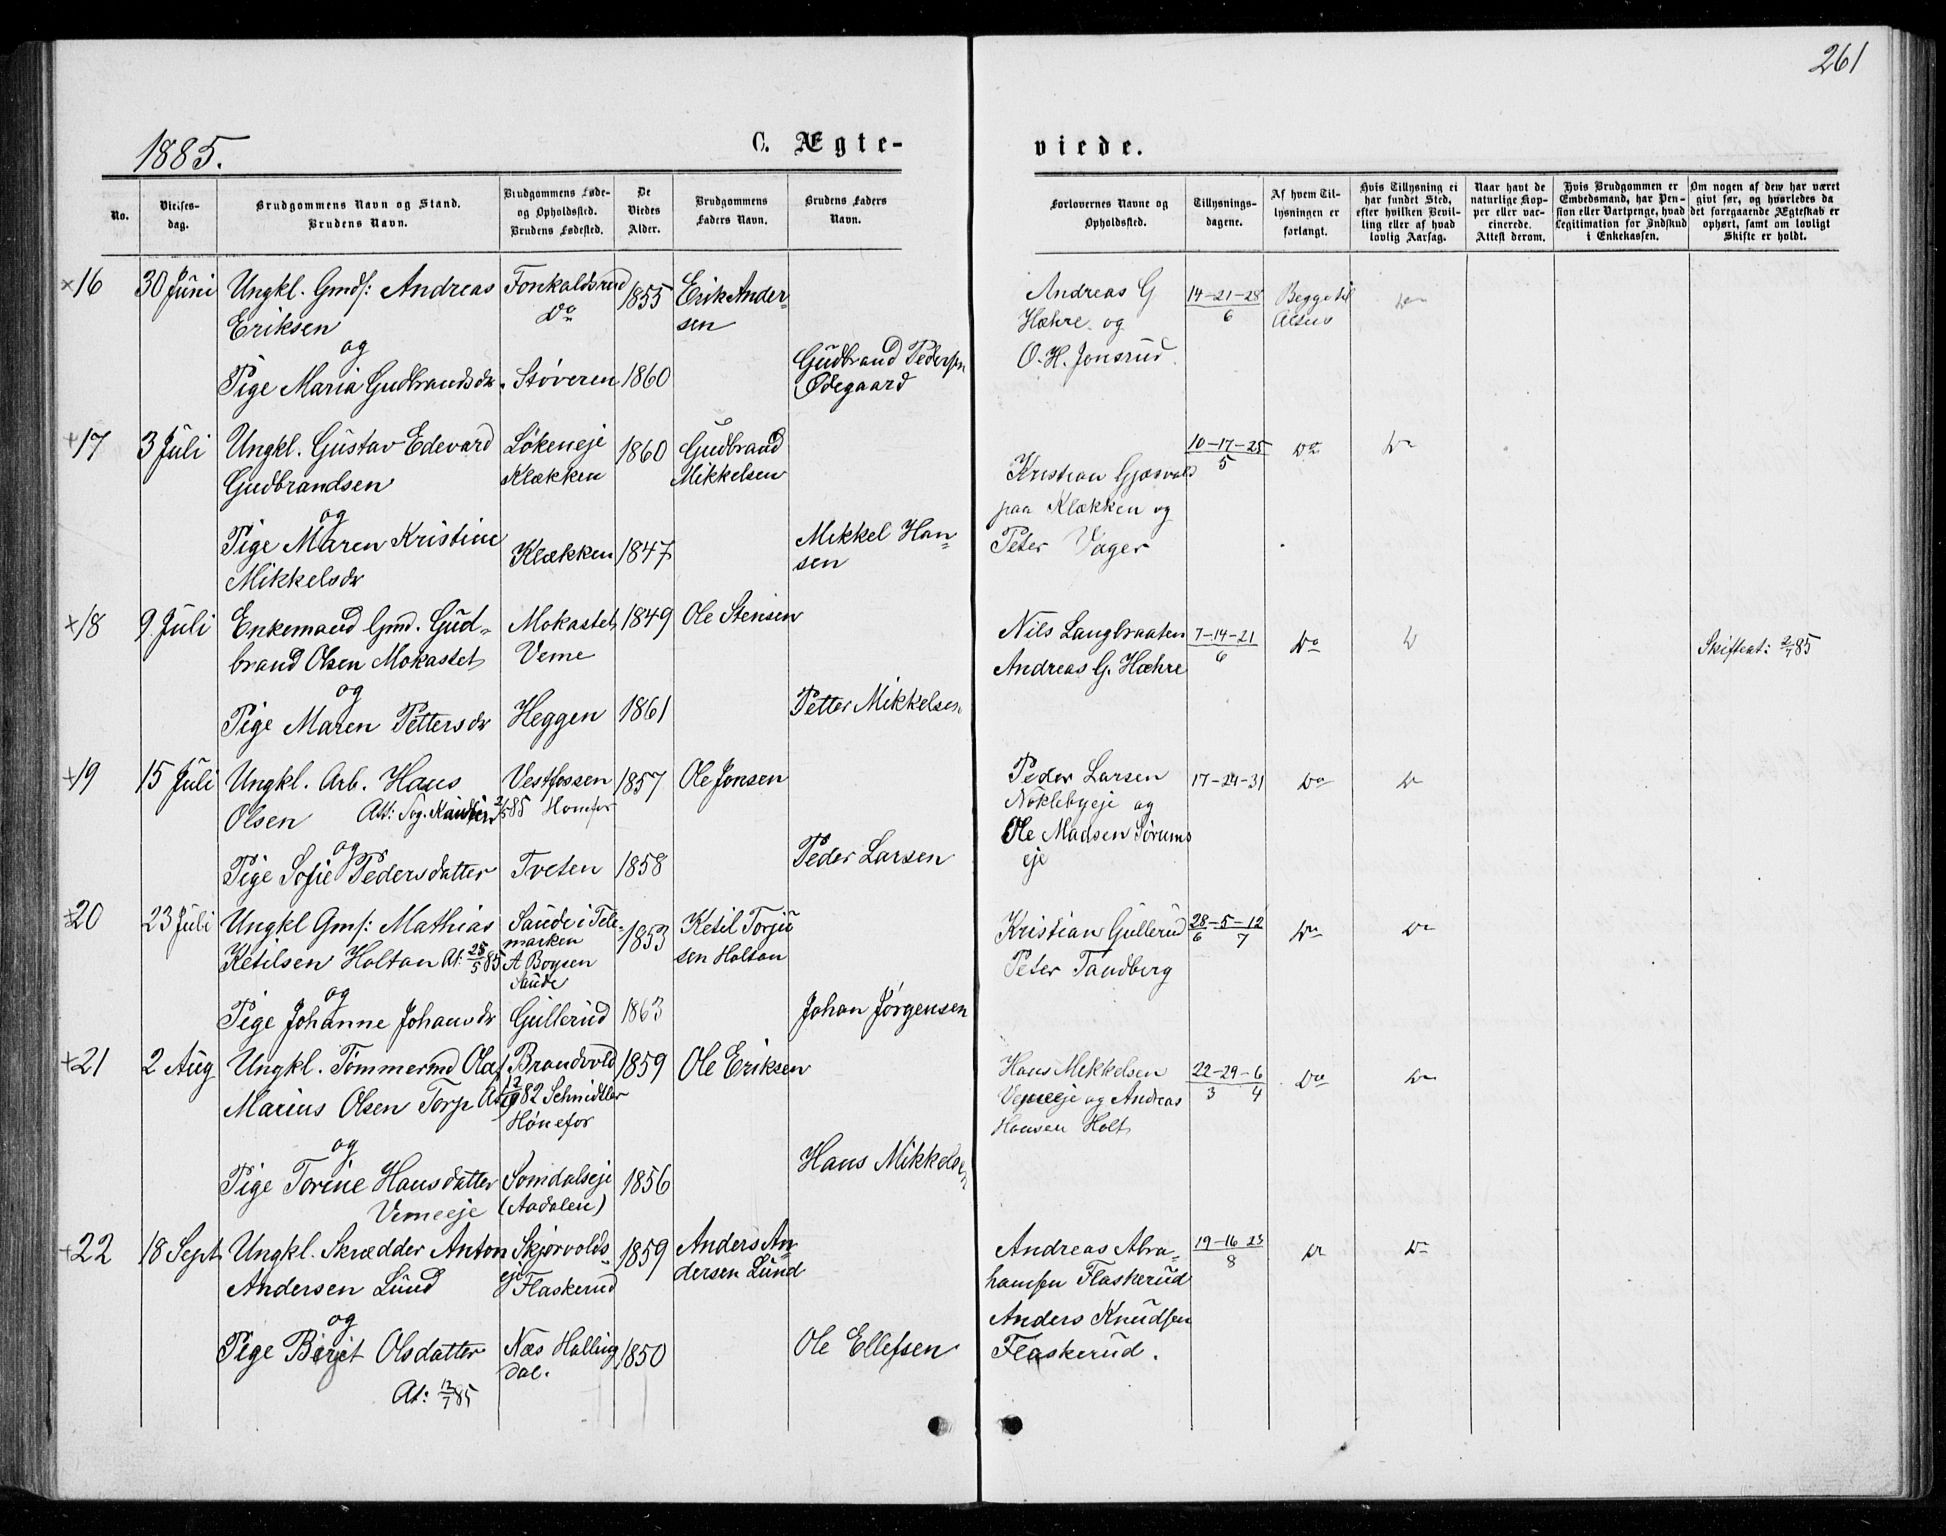 261
1885.
C. Ægte-
viede.
No.
Vielses-
dag.
Brudgommens Navn og Stand.
Brudens Navn.
Brudgommens Føde-
og Opholdssted.
Brudens Fødested.
De
Viedes
Alder.
Brudgommens
Faders Navn.
Brudens Faders
Navn.
Forlovernes Navne og
Opholdssted.
Tillysnings-
dagene.
Af hvem Til-
lysningen er
forlangt.
Hvis Tillysning ei
har fundet Sted,
efter hvilken Bevil-
ling eller af hvad
lovlig Aarsag.
Naar havt de
naturlige Kop-
per eller vac-
cinerede.
Attest derom.
Hvis Brudgommen er
Embedsmand, har Pen-
sion eller Vartpenge, hvad
Legitimation for Indskud
i Enkekassen.
Om nogen af dem har været
gift før, og hvorledes da
det foregaaende Ægteskab er
ophørt, samt om lovligt
Skifte er holdt.
×16
30 Juni
Ungkl. Gmds: Andreas
Eriksen
og
Pige Maria Gudbrandsdr.
Fonkaldsrud
Do
Støveren
1855
1860
Erik Ander-
sen
Gudbrand Pedersen
Ødegaard
Andreas G
Hæhre og
O. H. Jonsrud
14-21-28
6
Begge til
Alteu
Do
×17
3 Juli
Ungkl. Gustav Edevard
Gudbrandsen
og
Pige Maren Kristine
Mikkelsdr
Løkeneje
Klækken
Klækken
1860
1847
Gudbrand
Mikkelsen
Mikkel Han-
sen
Kristian Gjæsvold
paa Klækken og
Peter Vager
10-17-25
5
Do
Do
×18
9 Juli
Enkemand Gmd. Gud-
brand Olsen Mokastet
og
Pige Maren Pettersdr
Mokastet
Veme
Heggen
1849
1861
Ole Stensen
Petter Mikkelsen
Nils Langbraaten
Andreas G. Hæhre
7-14-21
6
Do
D
Skifteat: 2/7 85
×19
15 Juli
Ungkl. Arb. Hans
Olsen Att: Sog. 2/5 85 Honefor
og
Pige Sofie Pedersdatter
Vestfossen
Tveten
1857
1858
Ole Jonsen
Peder Larsen
Peder Larsen
Nøklebyeje og
Ole Madsen Sørums
eje
17-24-31
Do
Do
×20
23 Juli
Ungkl Gms: Mathias
Ketilsen Holtan At: 25/5 85
og
Pige Johanne Johansdr
Saude i Tele-
marken
A Boysen
Saude
Gullerud
1853
1863
Ketil Torju
sen Holtan
Johan Jørgensen
Kristian Gullerud
Peter Tandberg
28-5-12
6 7
Do
Do
×21
2 Aug
Ungkl. Tømmermd Olaf
Marius Olsen Torp At:
og
Pige Torine Hansdatter
Vemeeje
Brandvold
82 Schmidtler
Hønefor
Somdalseje
(Aadalen)
1859
1856
Ole Eriksen
Hans Mikkelsen
Hans Mikkelsen
Vemeeje og Andreas
Hansen Holt
22-29-6
3 4
Do
Do
×22
18 Sept
Ungkl. Skrædder Anton
Andersen Lund
og
Pige Birgit Olsdatter
At: 12/7 85
Skjørvolds-
eje
Flaskerud
Næs Halling
dal.
1859
1850
Anders An-
dersen Lund
Ole Ellefsen
Andreas Abra-
hamsen Flaskerud
Anders Knudsen
Flaskerud.
19-16 23
8
Do
Do